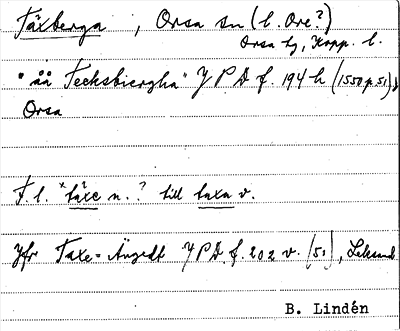 Täxberga, Orsa sn (l. Ore?)
Orsa tg, Kopp. l.
"åå Tecksbiergha" JPD f. 194 h (1550 p. 51),
Orsa
F. l. *täxe n.? till taxa v.
Jfr Taxe-Ängett JPD. f. 202 v. (51), Leksand
B. Lindén